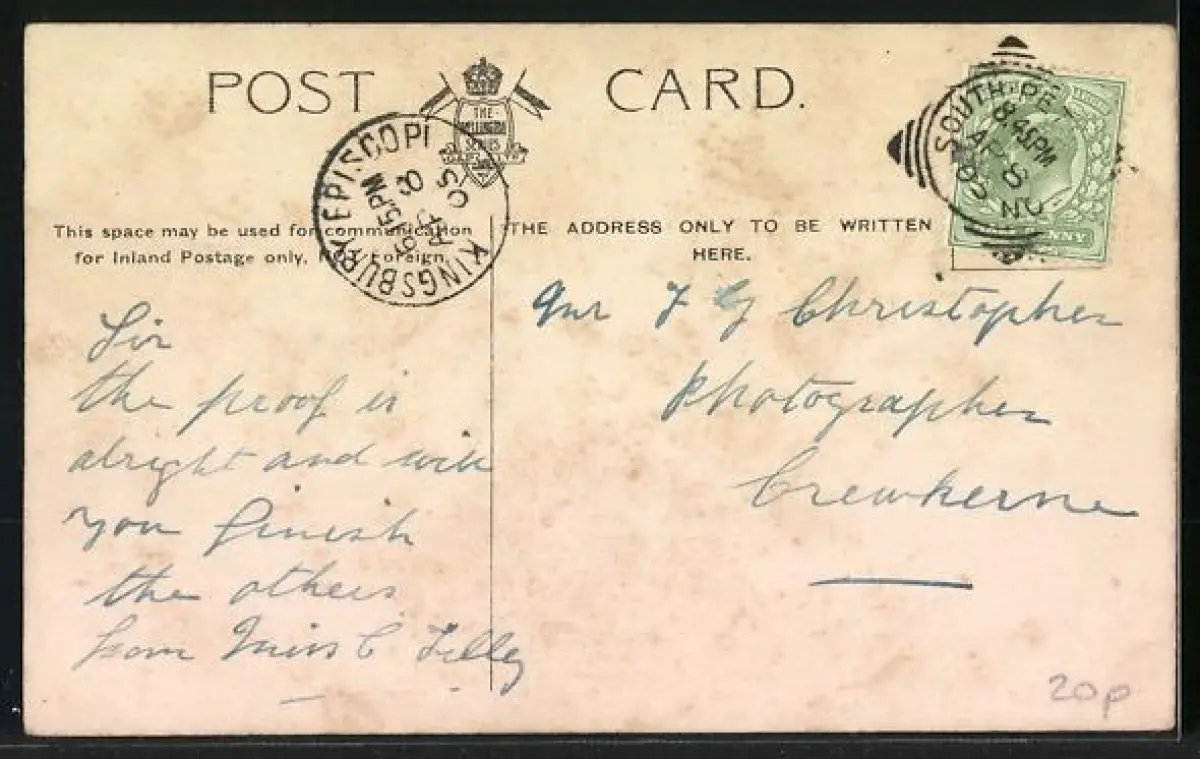 POST CARD.
THE WELLINGTON SERIES
KINGSBURY EPISCOPI
SOUTH PE
8 45PM
AP 8
05
This space may be used for communication
for Inland Postage only. Foreign
THE ADDRESS ONLY TO BE WRITTEN
HERE.
Sir
the proof is
alright and will
you finish
the others
from Miss C Tilley
F G Christopher
Photographer
Crewkerne
20p